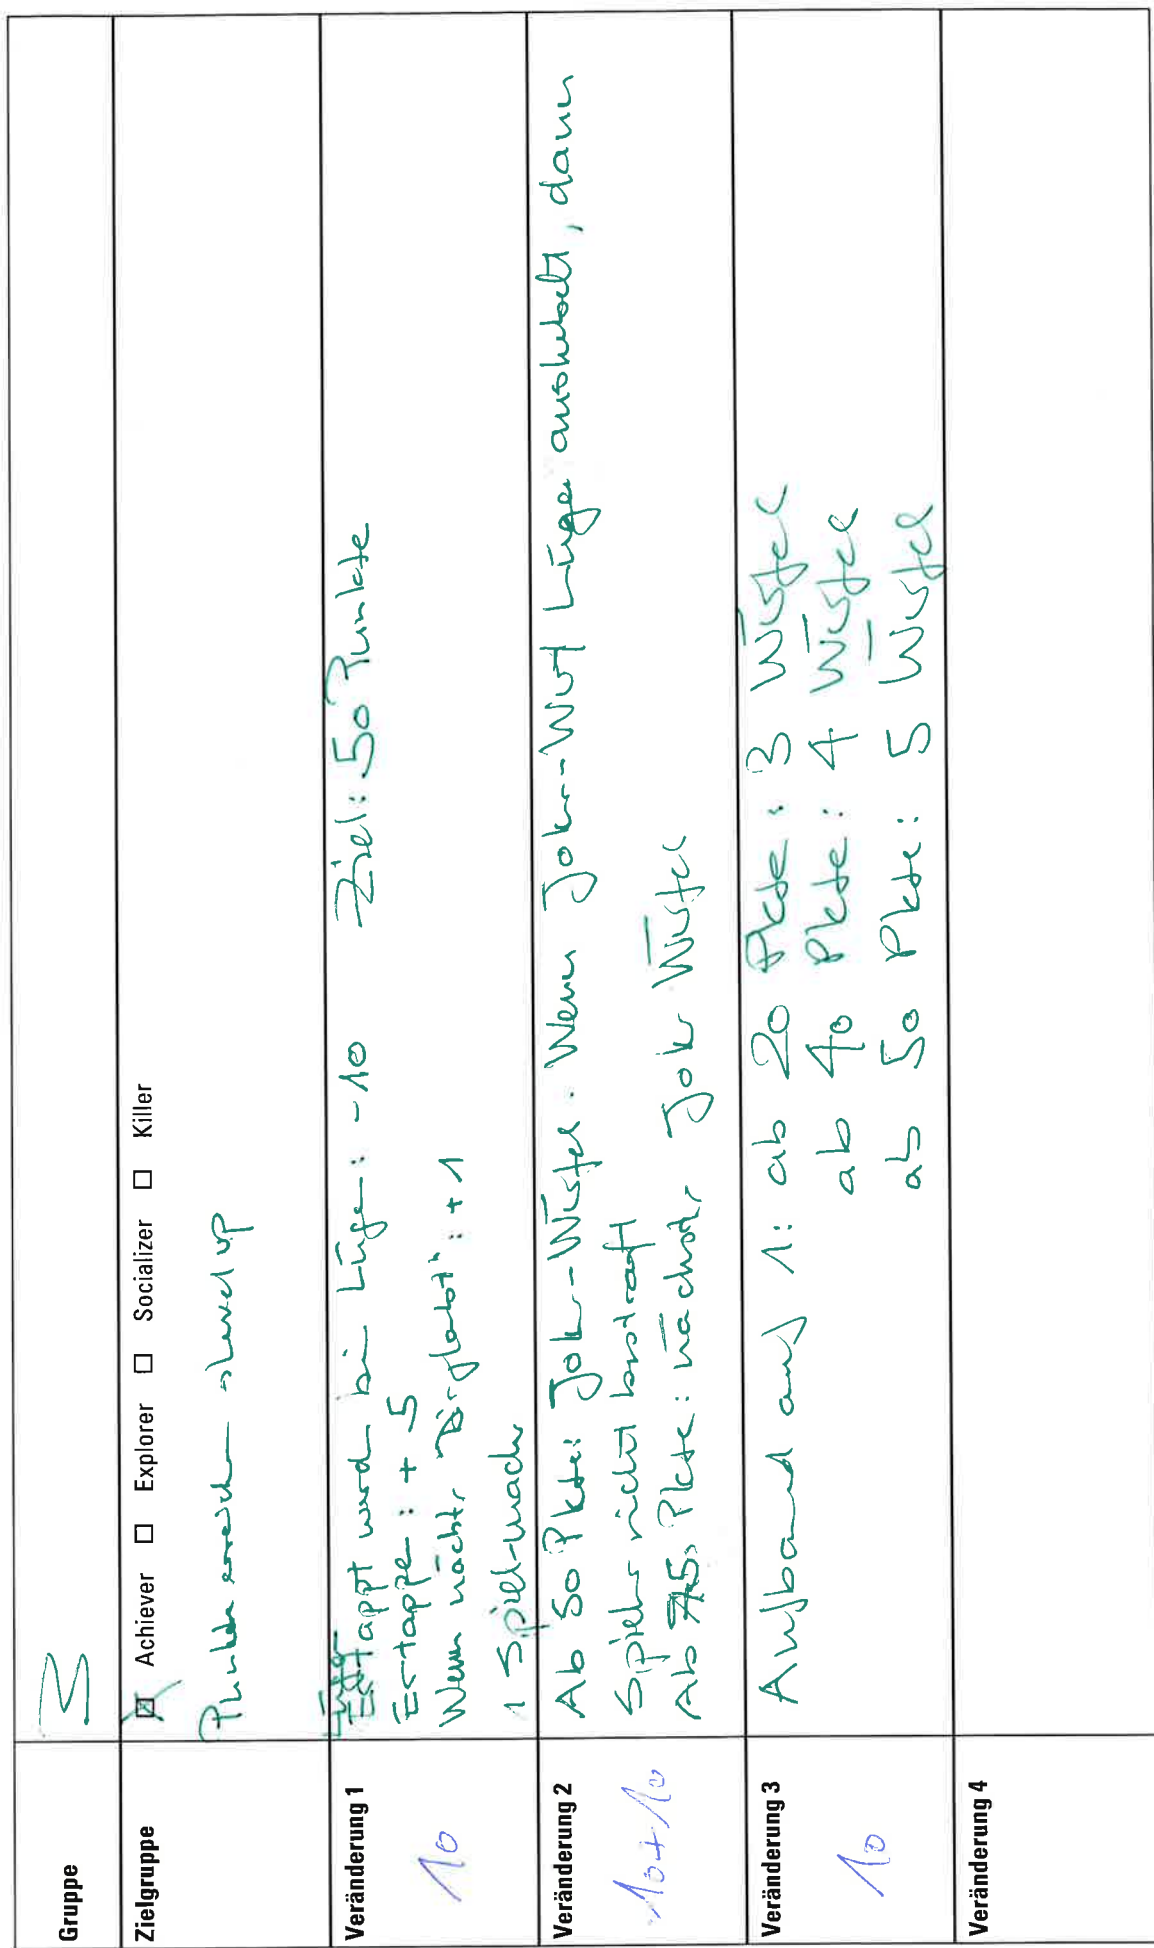 Gruppe
3
Zielgruppe
☒ Achiever ☐ Explorer ☐ Socializer ☐ Killer
Punkte erreichen → Level up
Veränderung 1
10
Ertappt werden bei Lügen: -10 Ziel: 50 Punkte
Ertappen: +5
Wenn nächster glaubt": +1
1 Spiel machen
Veränderung 2
10+10
Ab 50 Pkte: Joker-Würfel. Wenn Joker-Wurf Lüge, dann
Spieler nicht bestraft
Ab 75 Pkte: nächster Joker Würfel
Veränderung 3
10
Aufbauend auf 1: ab 20 Pkte: 3 Würfel
ab 40 Pkte: 4 Würfel
ab 50 Pkte: 5 Würfel
Veränderung 4